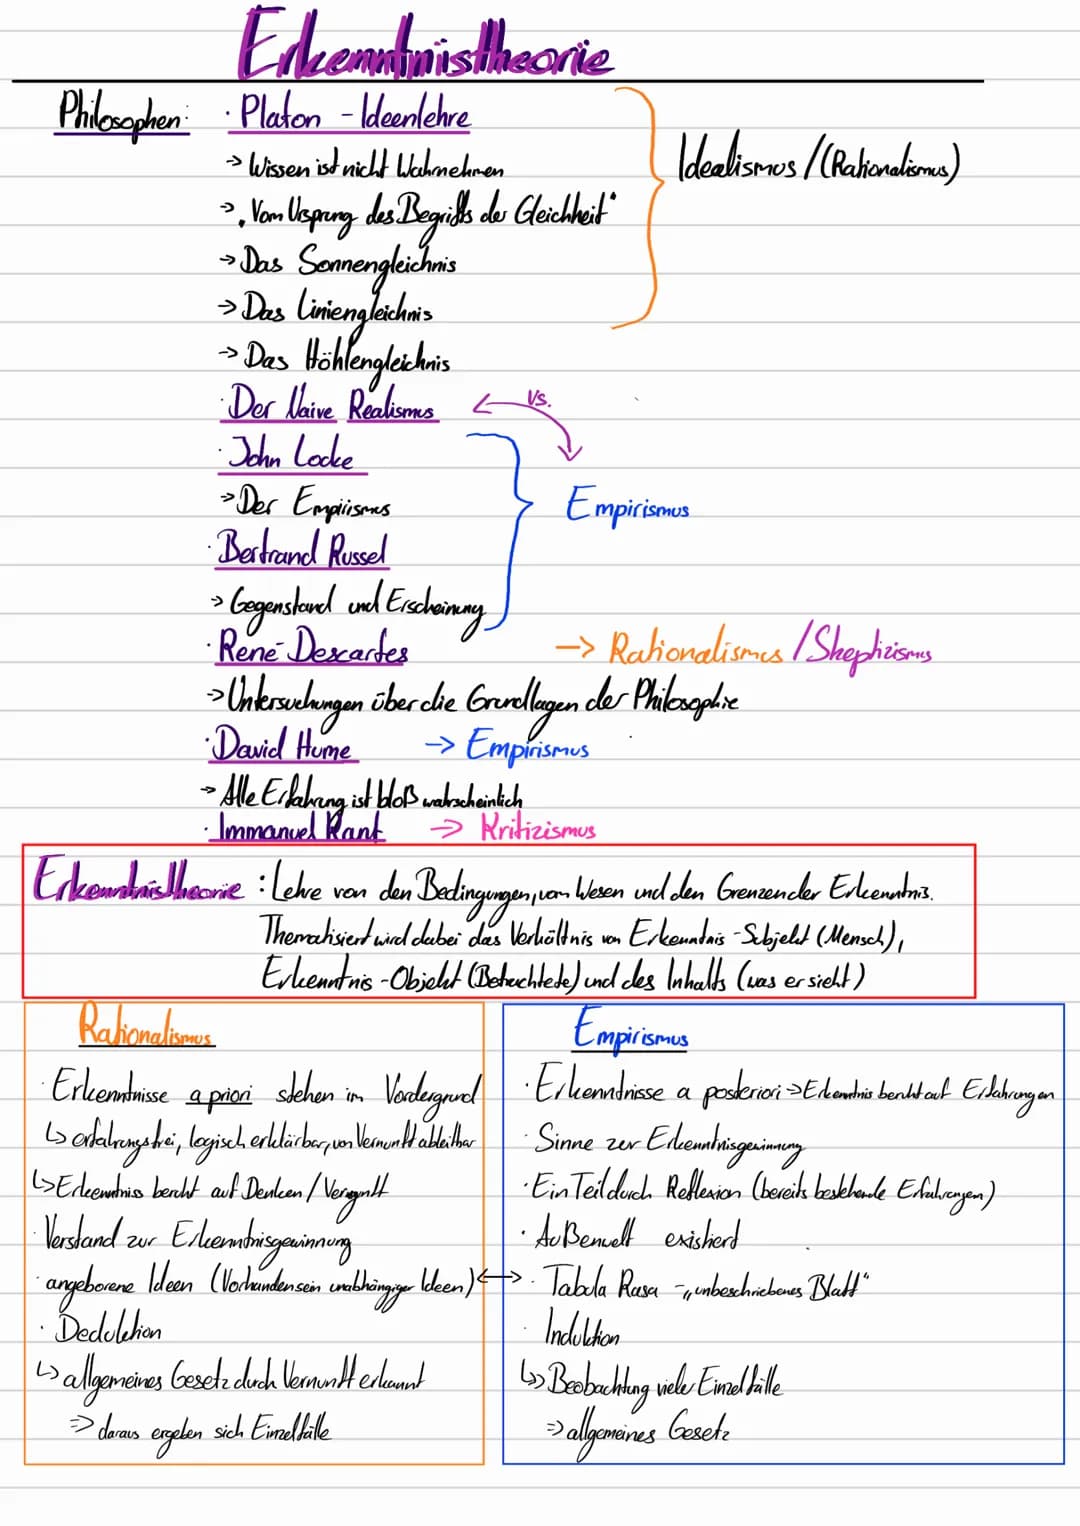 Erkenntnistheorie
Philosophen: · Platon - Ideenlehre
-> Wissen ist nicht Wahrnehmen
-> „Vom Ursprung des Begriffs der Gleichheit"
-> Das Sonnengleichnis
-> Das Liniengleichnis
-> Das Höhlengleichnis
Idealismus / (Rationalismus)
· Der Naive Realismus
vs.
· John Locke
-> Der Empirismus
Empirismus
· Bertrand Russel
-> Gegenstand und Erscheinung
· René Descartes -> Rationalismus / Skeptizismus
-> Untersuchungen über die Grundlagen der Philosophie
· David Hume -> Empirismus
-> Alle Erfahrung ist bloß wahrscheinlich
· Immanuel Kant -> Kritizismus
Erkenntnistheorie: Lehre von den Bedingungen, vom Wesen und den Grenzen der Erkenntnis.
Thematisiert wird dabei das Verhältnis von Erkenntnis-Subjekt (Mensch),
Erkenntnis-Objekt (Betrachtete) und des Inhalts (was er sieht)
Rationalismus
· Erkenntnisse a priori stehen im Vordergrund
↳ erfahrungsfrei, logisch erklärbar, von Vernunft ableitbar
↳ Erkenntniss beruht auf Denken / Vernunft
· Verstand zur Erkenntnisgewinnung
· angeborene Ideen (Vorhandensein unabhängiger Ideen) <->
· Deduktion
↳ allgemeines Gesetz durch Vernunft erkannt
=> daraus ergeben sich Einzelfälle
Empirismus
· Erkenntnisse a posteriori -> Erkenntnis beruht auf Erfahrungen
· Sinne zur Erkenntnisgewinnung
· Ein Teil durch Reflexion (bereits bestehende Erfahrungen)
· Außenwelt existiert
· Tabula Rasa - „unbeschriebenes Blatt"
· Induktion
↳> Beobachtung vieler Einzelfälle
=> allgemeines Gesetz